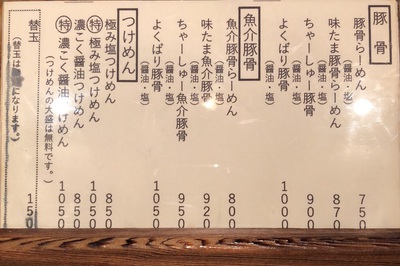 豚骨
豚骨らーめん 750
(醤油・塩)
味たま豚骨らーめん 870
(醤油・塩)
ちゃーしゅー豚骨 900
(醤油・塩)
よくばり豚骨 1000
(醤油・塩)
魚介豚骨
魚介豚骨らーめん 800
(醤油・塩)
味たま魚介豚骨 920
(醤油・塩)
ちゃーしゅー魚介豚骨 950
(醤油・塩)
よくばり豚骨 1050
(醤油・塩)
つけめん
極み塩つけめん 850
特 極み塩つけめん 1050
濃こく醤油つけめん 850
特 濃こく醤油つけめん 1050
(つけめんの大盛は無料です。)
替玉 150
(替玉は になります。)